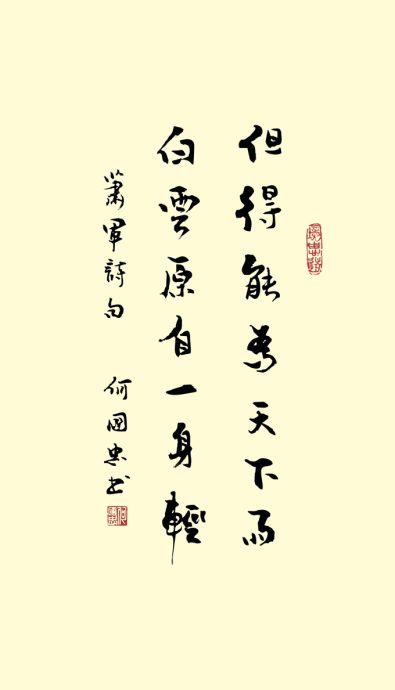 但得能為天下雨
白雲原自一身輕
蕭軍詩句 何國忠书